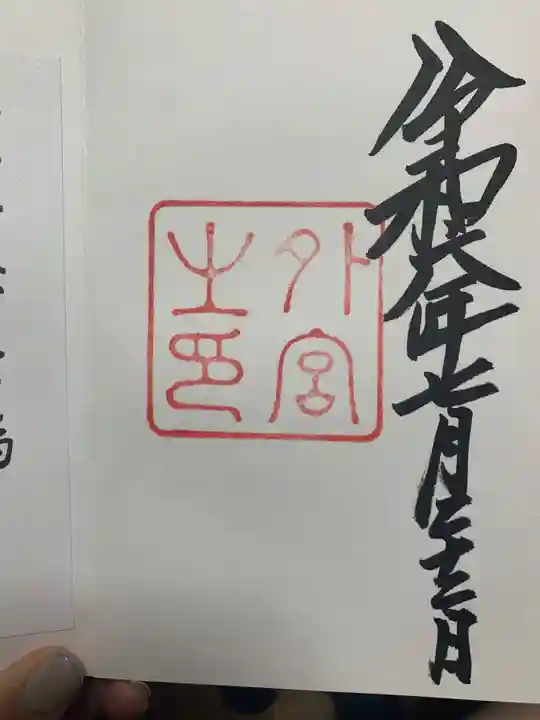 令和六年七月二十二日
外宮
之印